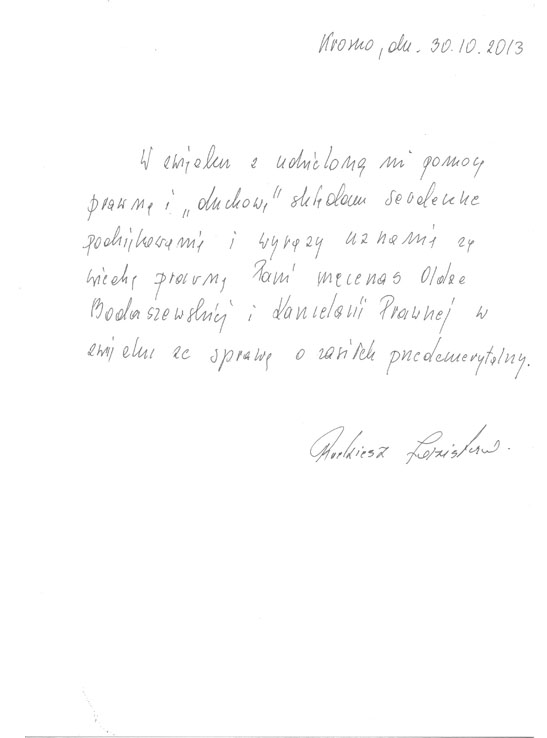 Krosno, dn. 30.10.2013
W związku z udzieloną mi pomocą
prawną i „duchową" składam serdeczne
podziękowania i wyrazy uznania za
wiedzę prawną Pani mecenas Oldze
i Kancelarii Prawnej w
związku ze sprawą o zasiłek przedemerytalny.